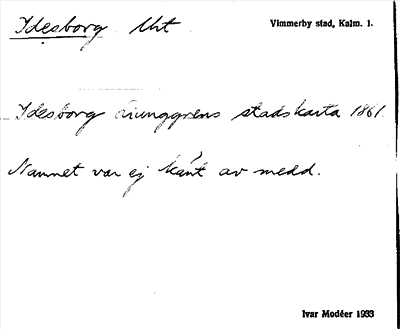 Idesborg Uht Vimmerby stad, Kalm. l.
Idesborg Liunggrens stadskarta 1861.
Namnet var ej känt av medd.
Ivar Modéer 1933